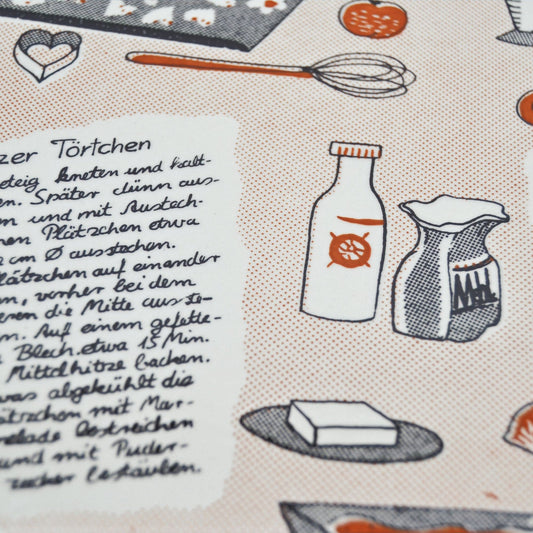 zer Törtchen
eteig kneten und kalt-
en. Später dünn aus-
en und mit Austech-
hen Plätzchen etwa
cm Ø ausstechen.
lätzchen auf einander
n, vorher bei dem
eren die Mitte ausste-
n. Auf einem gefette-
Blech etwa 15 Min.
Mittelhitze backen.
was abgekühlt die
ätzchen mit Mar-
melade bestreichen
und mit Puder-
zucker bestäuben.